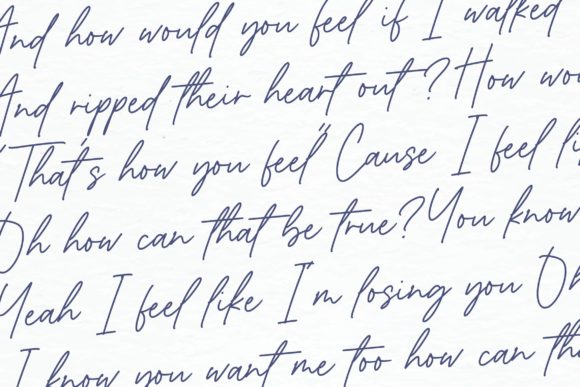 And how would you feel if I walked
And ripped their heart out? How wou
"That's how you feel" Cause I feel li
Oh how can that be true? You know
Yeah I feel like I'm losing you Oh
I know you want me too how can tha